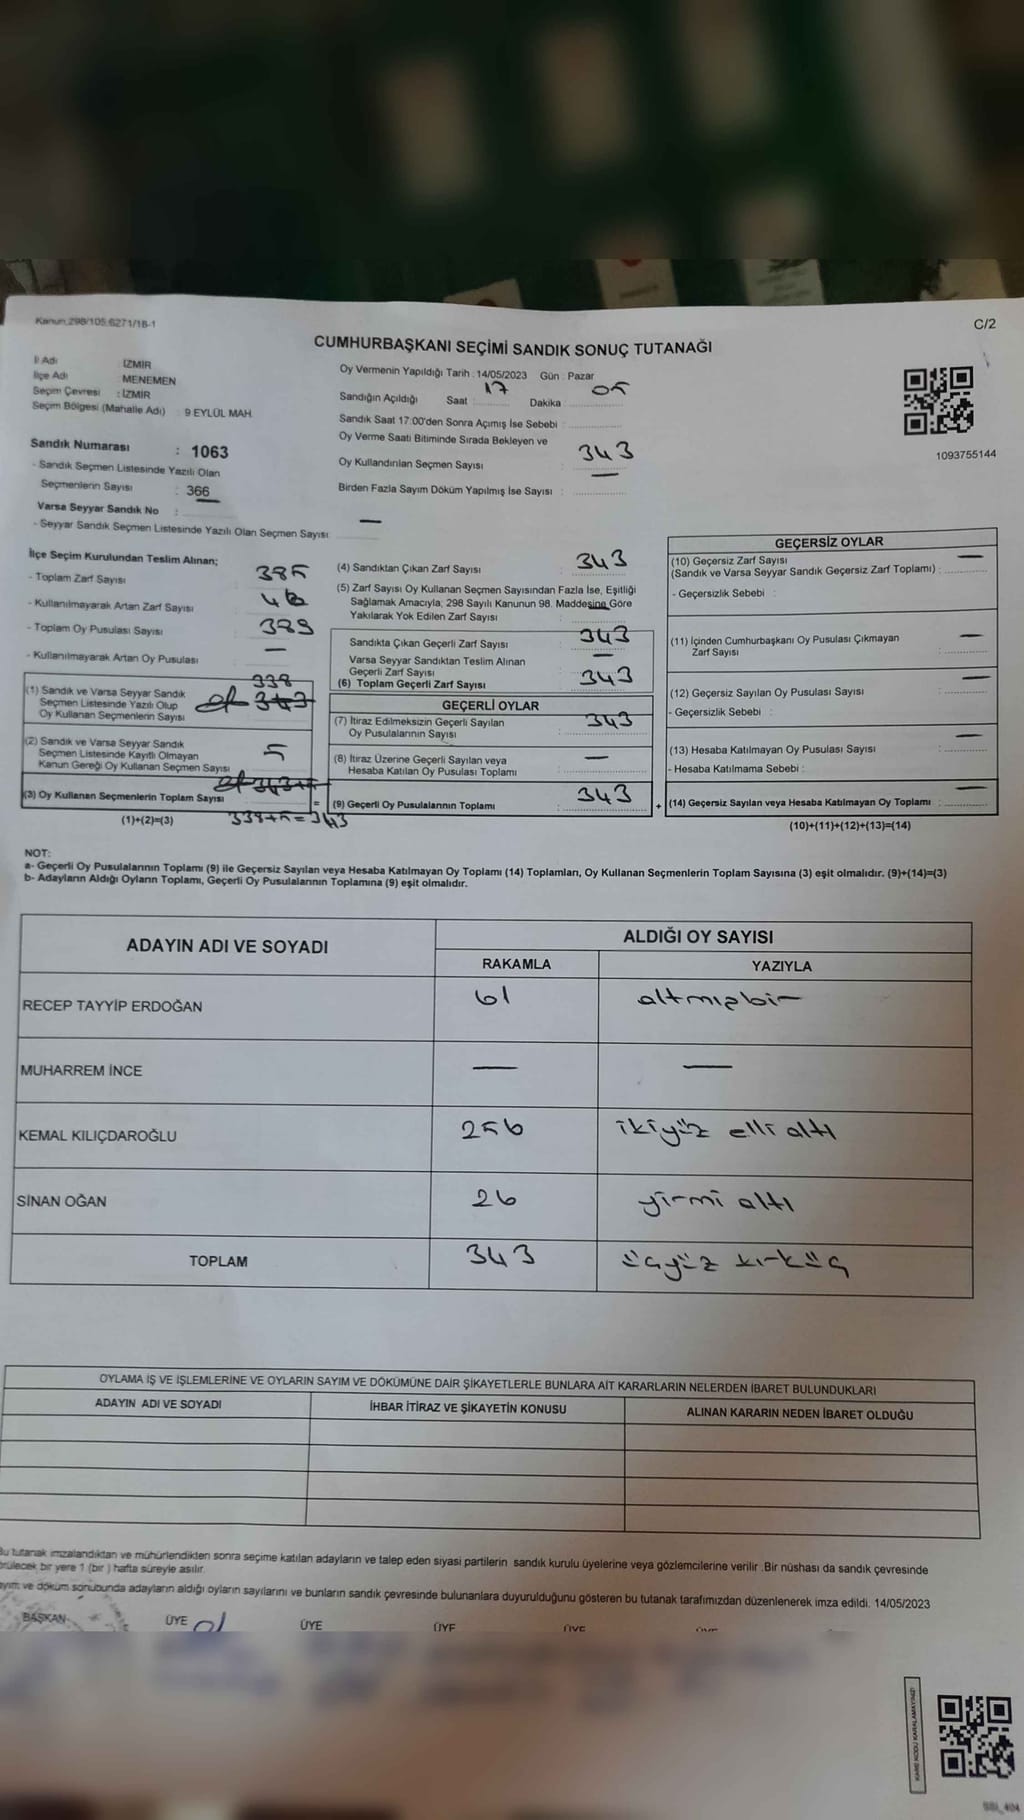 Kanun.298/105.6271/18-1
C/2
CUMHURBAŞKANI SEÇİMİ SANDIK SONUÇ TUTANAĞI
İl Adı : İZMİR
İlçe Adı : MENEMEN
Seçim Çevresi : İZMİR
Seçim Bölgesi (Mahalle Adı) : 9 EYLÜL MAH.
Sandık Numarası : 1063
- Sandık Seçmen Listesinde Yazılı Olan
Seçmenlerin Sayısı : 366
Varsa Seyyar Sandık No :
- Seyyar Sandık Seçmen Listesinde Yazılı Olan Seçmen Sayısı: —
Oy Vermenin Yapıldığı Tarih : 14/05/2023 Gün : Pazar
Sandığın Açıldığı Saat : 17 Dakika : 05
Sandık Saat 17:00'den Sonra Açımış İse Sebebi :
Oy Verme Saati Bitiminde Sırada Bekleyen ve
Oy Kullandırılan Seçmen Sayısı : 343
Birden Fazla Sayım Döküm Yapılmış İse Sayısı : —
1093755144
İlçe Seçim Kurulundan Teslim Alınan;
- Toplam Zarf Sayısı 385
- Kullanılmayarak Artan Zarf Sayısı
- Toplam Oy Pusulası Sayısı 389
- Kullanılmayarak Artan Oy Pusulası —
(1) Sandık ve Varsa Seyyar Sandık
Seçmen Listesinde Yazılı Olup
Oy Kullanan Seçmenlerin Sayısı
338
343
(2) Sandık ve Varsa Seyyar Sandık
Seçmen Listesinde Kayıtlı Olmayan
Kanun Gereği Oy Kullanan Seçmen Sayısı 5
(3) Oy Kullanan Seçmenlerin Toplam Sayısı
(1)+(2)=(3) 338+5=343
(4) Sandıktan Çıkan Zarf Sayısı : 343
(5) Zarf Sayısı Oy Kullanan Seçmen Sayısından Fazla İse, Eşitliği
Sağlamak Amacıyla; 298 Sayılı Kanunun 98. Maddesine Göre
Yakılarak Yok Edilen Zarf Sayısı :
Sandıkta Çıkan Geçerli Zarf Sayısı : 343
Varsa Seyyar Sandıktan Teslim Alınan
Geçerli Zarf Sayısı : —
(6) Toplam Geçerli Zarf Sayısı : 343
GEÇERLİ OYLAR
(7) İtiraz Edilmeksizin Geçerli Sayılan
Oy Pusulalarının Sayısı : 343
(8) İtiraz Üzerine Geçerli Sayılan veya
Hesaba Katılan Oy Pusulası Toplamı : —
= (9) Geçerli Oy Pusulalarının Toplamı : 343
GEÇERSİZ OYLAR
(10) Geçersiz Zarf Sayısı
(Sandık ve Varsa Seyyar Sandık Geçersiz Zarf Toplamı) : —
- Geçersizlik Sebebi :
(11) İçinden Cumhurbaşkanı Oy Pusulası Çıkmayan
Zarf Sayısı : —
(12) Geçersiz Sayılan Oy Pusulası Sayısı : —
- Geçersizlik Sebebi :
(13) Hesaba Katılmayan Oy Pusulası Sayısı : —
- Hesaba Katılmama Sebebi :
+ (14) Geçersiz Sayılan veya Hesaba Katılmayan Oy Toplamı : —
(10)+(11)+(12)+(13)=(14)
NOT:
a- Geçerli Oy Pusulalarının Toplamı (9) ile Geçersiz Sayılan veya Hesaba Katılmayan Oy Toplamı (14) Toplamları, Oy Kullanan Seçmenlerin Toplam Sayısına (3) eşit olmalıdır. (9)+(14)=(3)
b- Adayların Aldığı Oyların Toplamı, Geçerli Oy Pusulalarının Toplamına (9) eşit olmalıdır.
ADAYIN ADI VE SOYADI
ALDIĞI OY SAYISI
RAKAMLA YAZIYLA
RECEP TAYYİP ERDOĞAN 61 altmışbir
MUHARREM İNCE — —
KEMAL KILIÇDAROĞLU 256 ikiyüz elli altı
SİNAN OĞAN 26 yirmi altı
TOPLAM 343 üçyüz kırküç
OYLAMA İŞ VE İŞLEMLERİNE VE OYLARIN SAYIM VE DÖKÜMÜNE DAİR ŞİKAYETLERLE BUNLARA AİT KARARLARIN NELERDEN İBARET BULUNDUKLARI
ADAYIN ADI VE SOYADI İHBAR İTİRAZ VE ŞİKAYETİN KONUSU ALINAN KARARIN NEDEN İBARET OLDUĞU
Bu tutanak imzalandıktan ve mühürlendikten sonra seçime katılan adayların ve talep eden siyasi partilerin sandık kurulu üyelerine veya gözlemcilerine verilir .Bir nüshası da sandık çevresinde
bir yere 1 (bir ) hafta süreyle asılır.
ve döküm sonubunda adayların aldığı oyların sayılarını ve bunların sandık çevresinde bulunanlara duyurulduğunu gösteren bu tutanak tarafımızdan düzenlenerek imza edildi. 14/05/2023
BAŞKAN ÜYE ÜYE ÜYE ÜYE ÜYE
KARE KODU KARALAMAYINIZ!